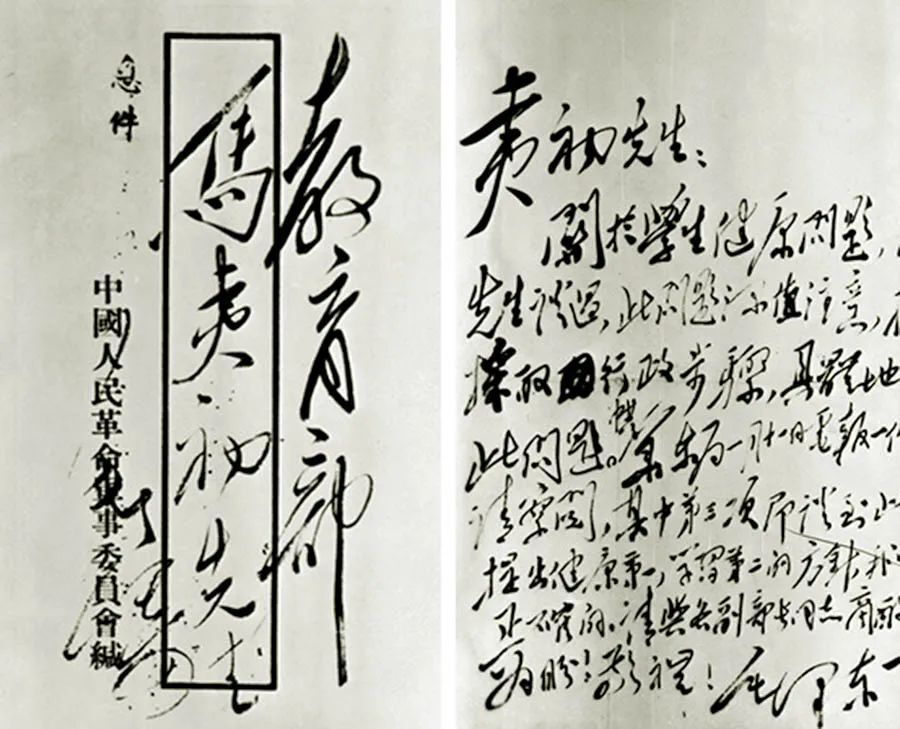 教育部
馬夷初先生
急件
中國人民革命軍事委員會緘
夷初先生:
關於學生健康問題,
先生談過,此問題深值注意,
採取行政步驟,具體地
此問題。東局一月十一日電報一件
請察閱,其中第三項即談到此
提出健康第一,學習第二的方針,我
正確的。請與各副部長同志商酌
為盼!敬禮!毛澤東